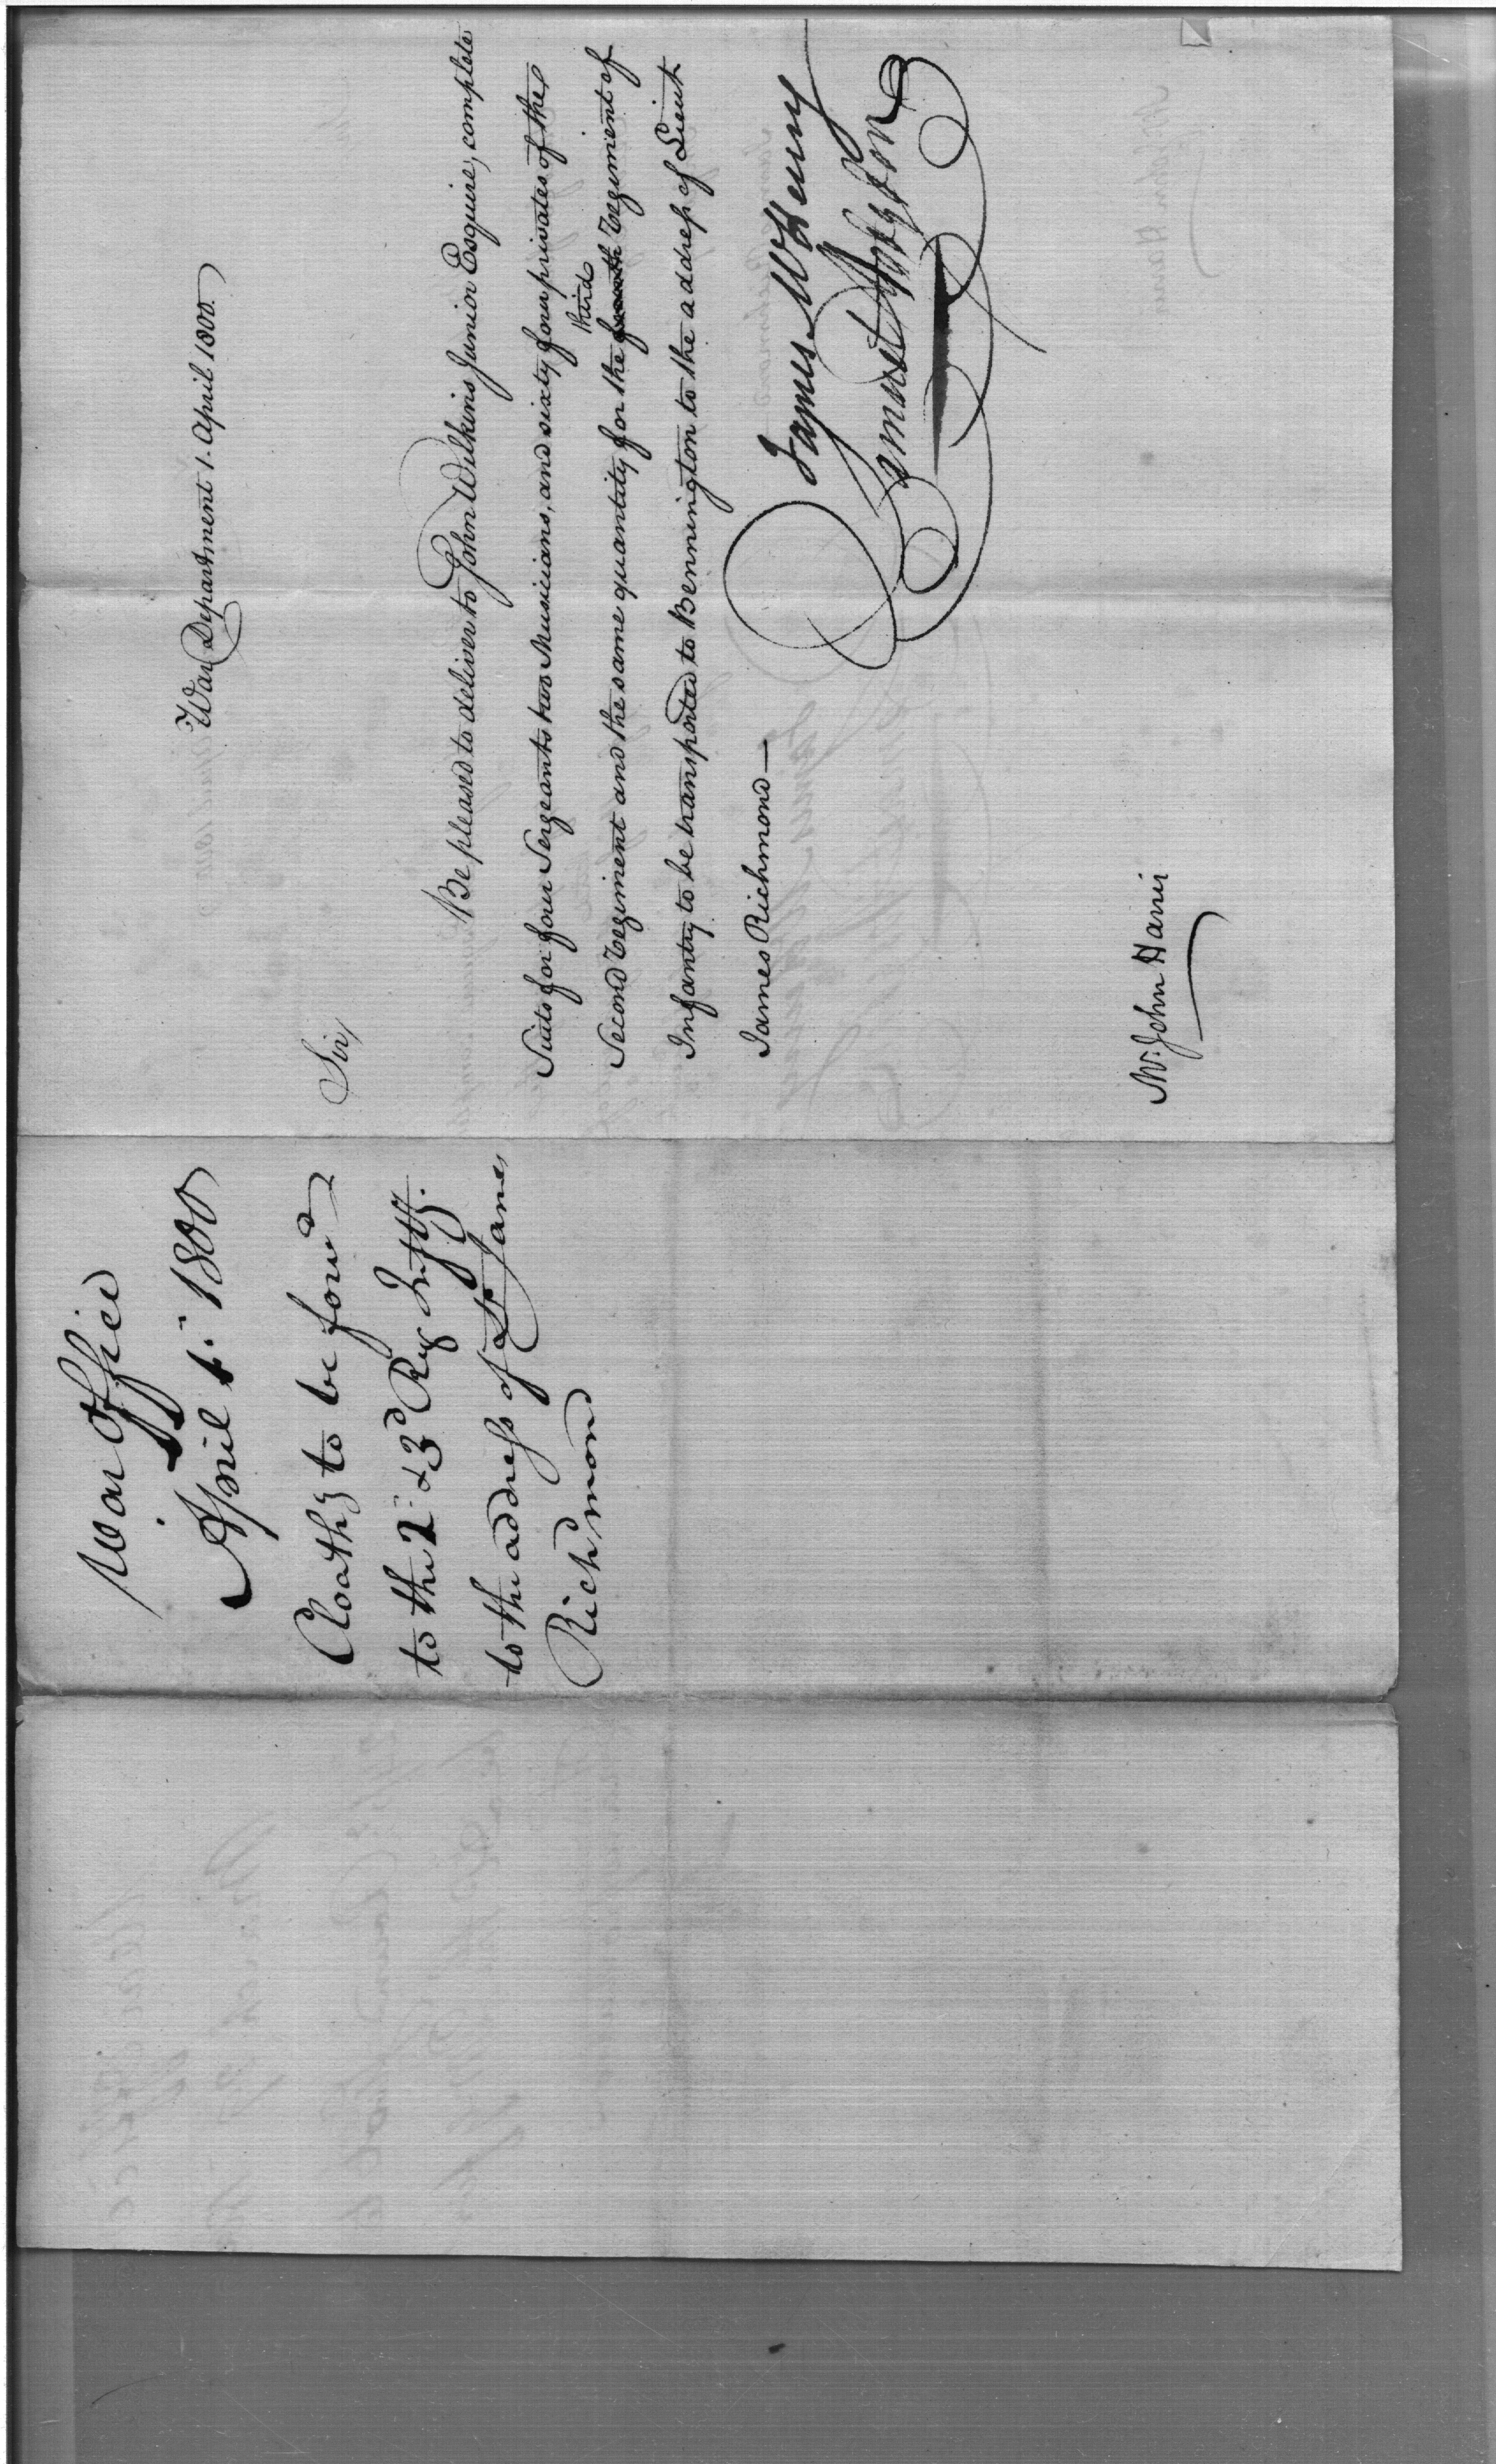 War Department 1. April 1800.
Sir,
Be pleased to deliver to John Wilkins Junior Esquire, complete
Suits for four Sergeants two Musicians, and sixty four privates of the
third
Second regiment and the same quantity for the fourth regiment of
Infantry to be transported to Bennington to the address of Lieut
James Richmond —
James McHenry
Samuel Hodgdon
Mr. John Harris
War Office
April 1: 1800
Cloathg to be forwd
to the 2: & 3d Reg Infty.
to the address of Lt James
Richmond